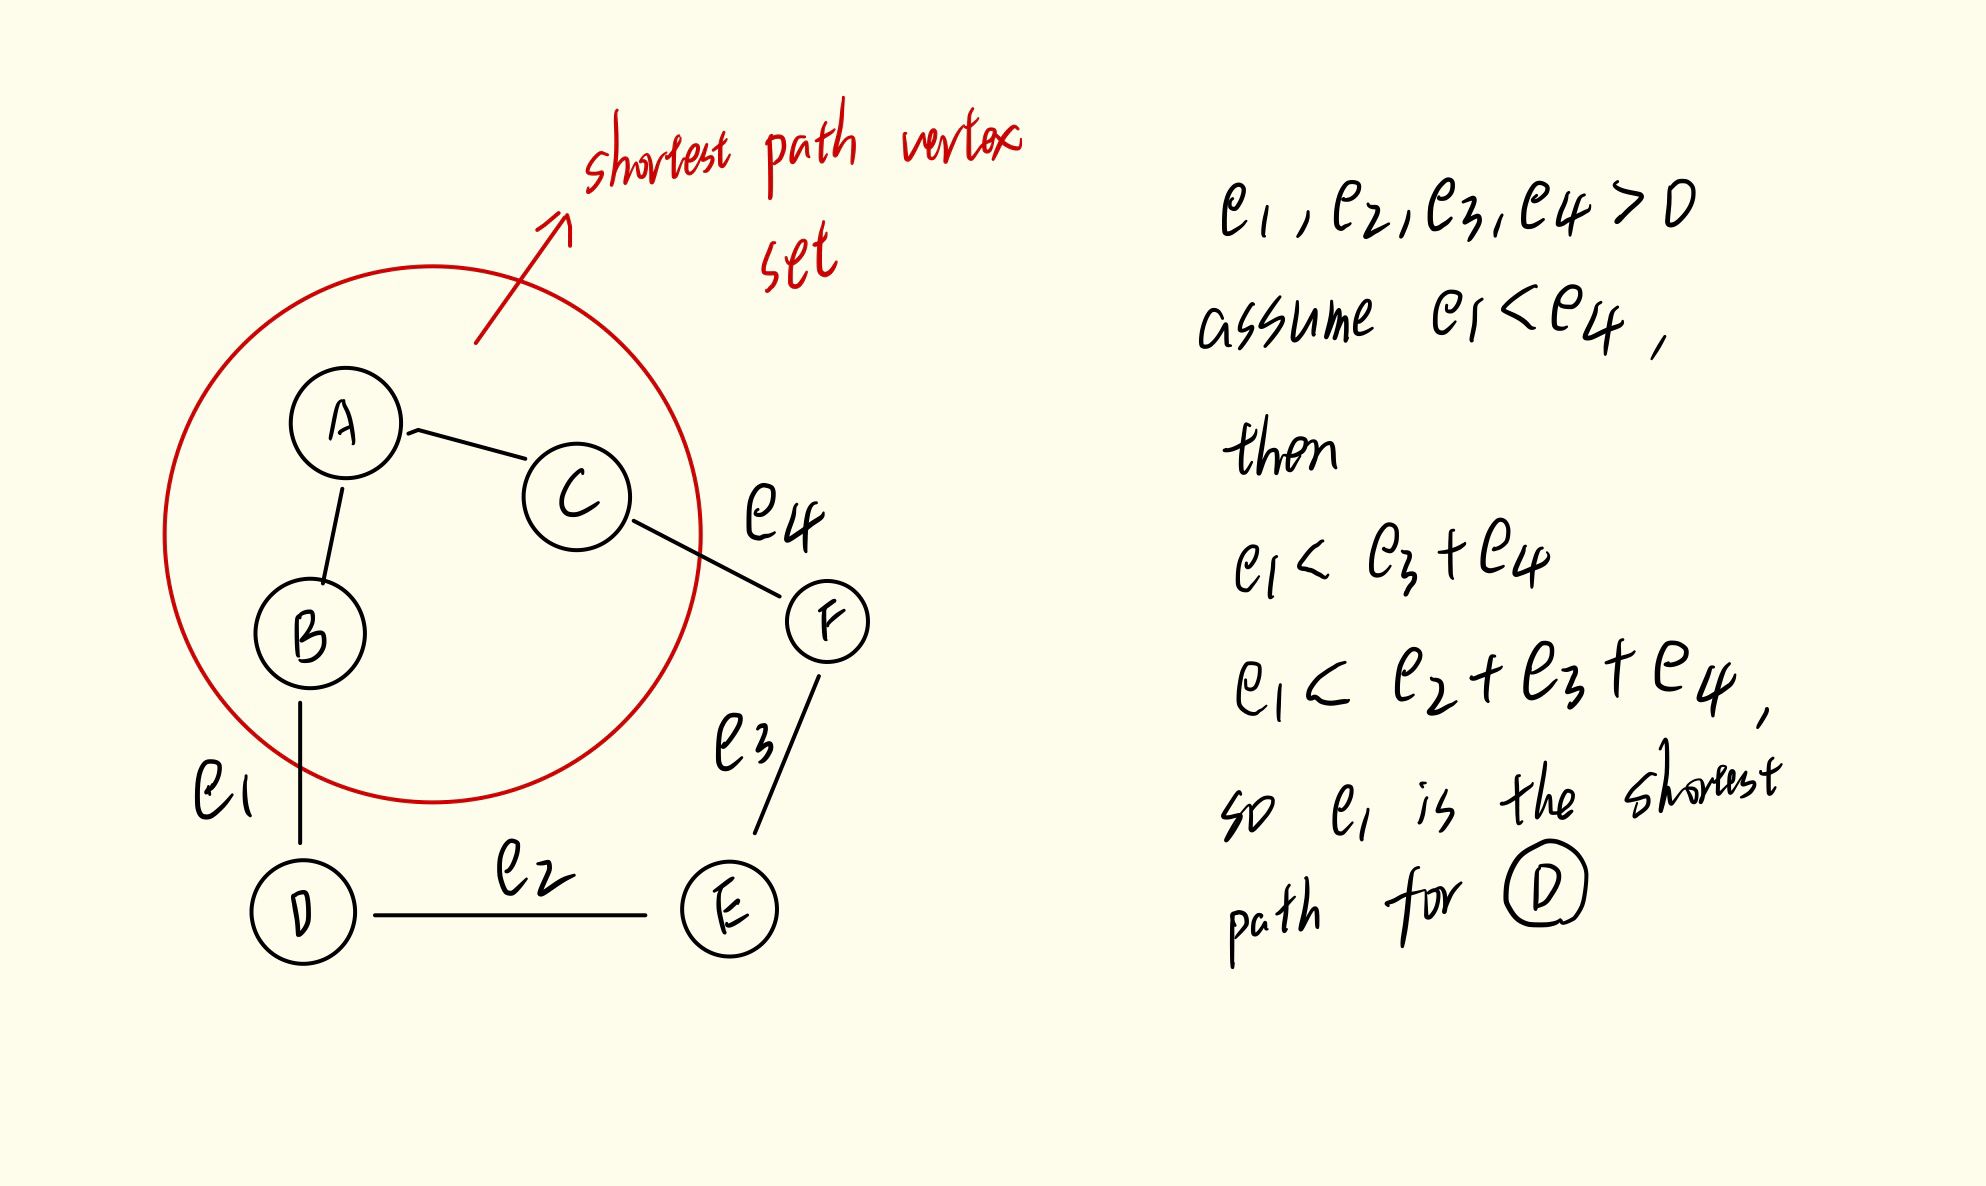 shortest path vertex
set
A
C
B
e4
F
e3
e1
e2
D
E
e1, e2, e3, e4 > 0
assume e1 < e4,
then
e1 < e3 + e4
e1 < e2 + e3 + e4,
so e1 is the shortest
path for D